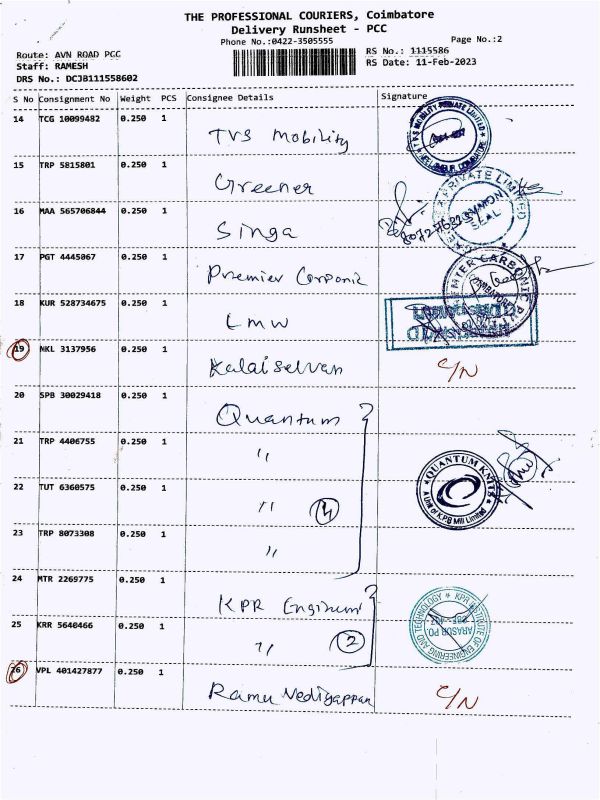 THE PROFESSIONAL COURIERS, Coimbatore
Delivery Runsheet - PCC
Phone No.:0422-3505555
Page No.:2
Route: AVN ROAD PCC
RS No.: 1115586
Staff: RAMESH
RS Date: 11-Feb-2023
DRS No.: DCJB111558602
S No Consignment No Weight PCS Consignee Details Signature
14 TCG 10099482 0.250 1 TVS Mobility
15 TRP 5815801 0.250 1 Greener
16 MAA 565706844 0.250 1 Singa
17 PGT 4445067 0.250 1 Premier Carponic
18 KUR 528734675 0.250 1 LMW
19 NKL 3137956 0.250 1 Kalaiselvan C/N
20 SPB 30029418 0.250 1 Quantum
21 TRP 4406755 0.250 1 "
22 TUT 6360575 0.250 1 " 4
QUANTUM KNITS
23 TRP 8073308 0.250 1 "
24 MTR 2269775 0.250 1 KPR Engineri
25 KRR 5640466 0.250 1 " 2
KPR INSTITUTE OF ENGINEERING AND TECHNOLOGY
ARASUR PO.
26 VPL 401427877 0.250 1 Ramu Nediyappan C/N